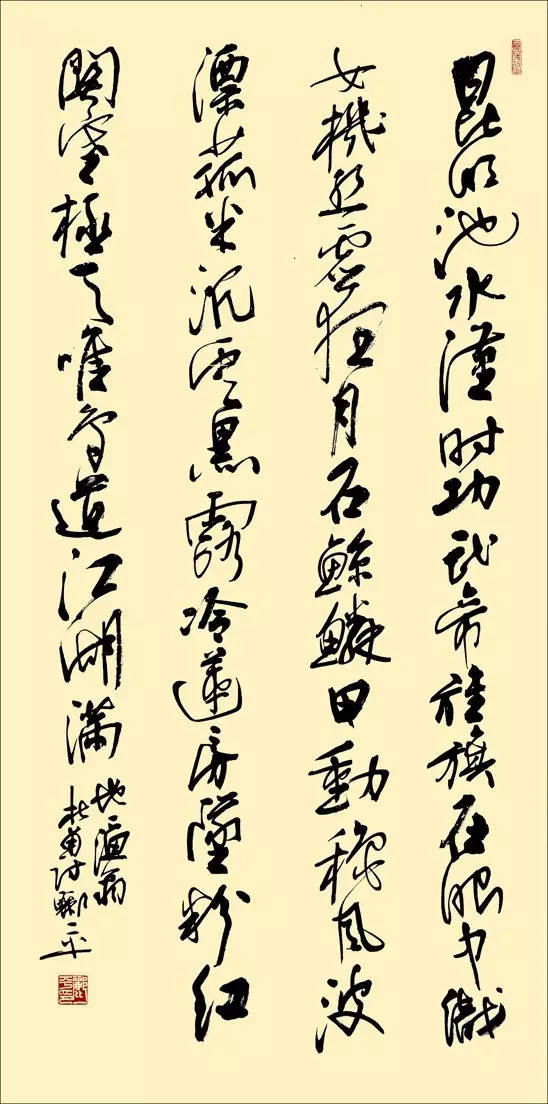 昆明池水漢时功武帝旌旗在眼中織
女機丝虚夜月石鯨鱗甲動秋風波
漂菰米沉雲黑露冷蓮房墜粉紅
關塞極天唯鳥道江湖滿
地一漁翁
杜甫诗